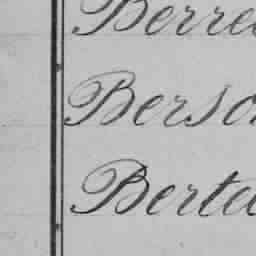 Berre
Berso
Berta